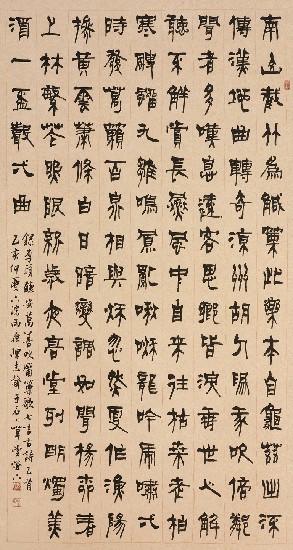 南山截竹爲觱篥此樂本自龜茲出流
傳漢地曲轉奇涼州胡人爲我吹傍鄰
聞者多嘆息遠客思鄉皆淚垂世人解
聽不解賞長飆風中自來往枯桑老柏
寒颼飀九雛鳴鳳亂啾啾龍吟虎嘯弌
時發萬籟百泉相與秋忽然更作漁陽
摻黃雲蕭條白日暗變調如聞楊柳春
上林繁花照眼新歲夜高堂列明燭美
酒一盃聲弌曲
錄李頎聽安萬善吹觱篥歌七言古詩乙首
乙亥仲夏